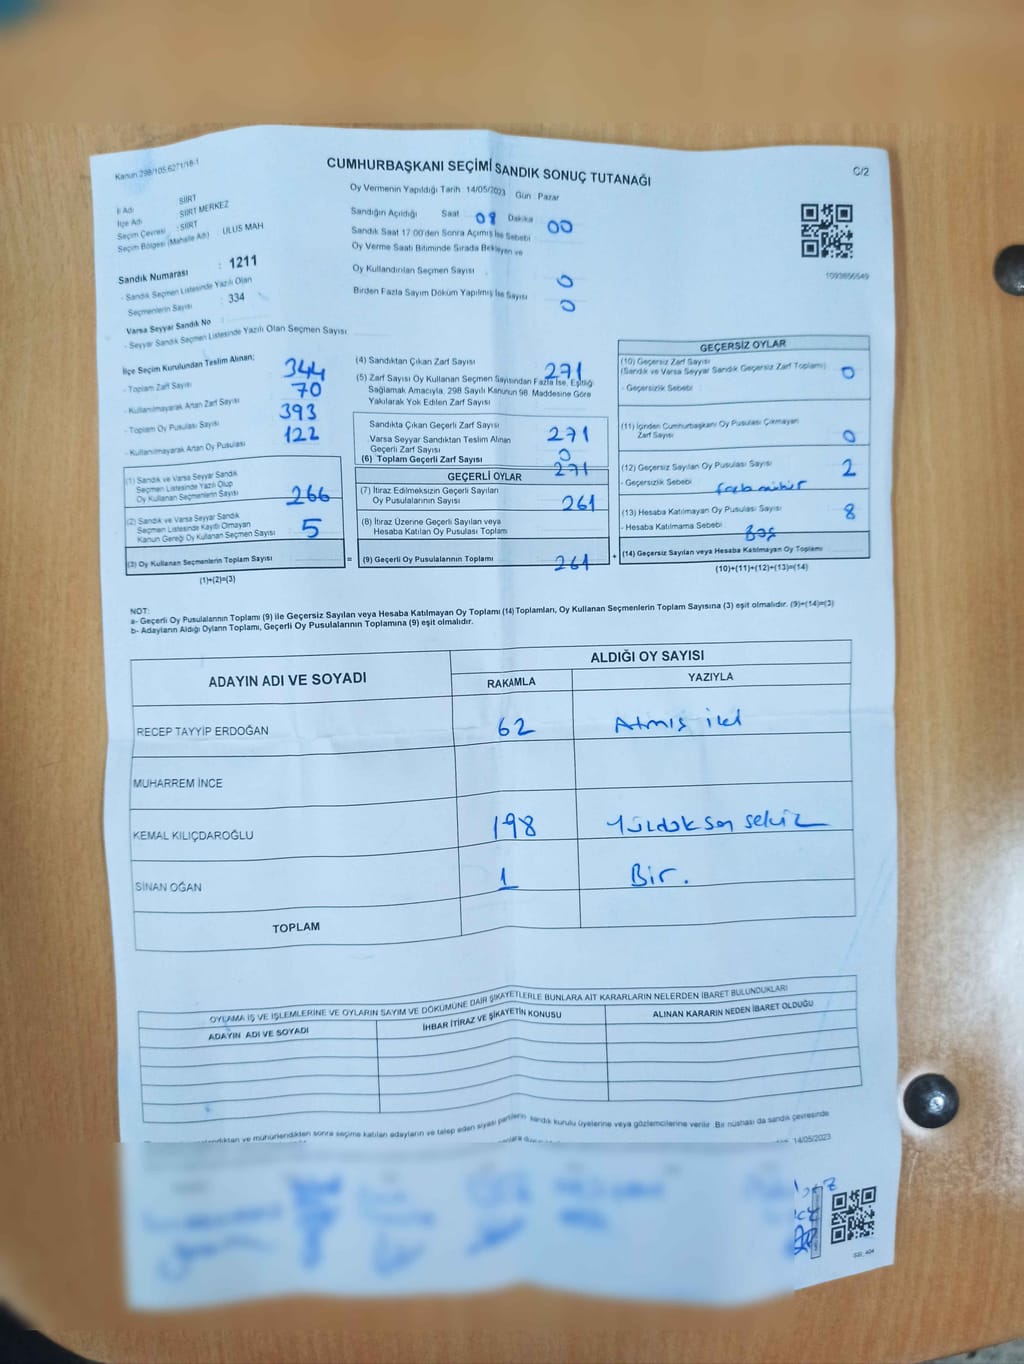 Kanun 298/105.6271/18-1
CUMHURBAŞKANI SEÇİMİ SANDIK SONUÇ TUTANAĞI
C/2
Oy Vermenin Yapıldığı Tarih : 14/05/2023 Gün : Pazar
İl Adı : SİİRT
İlçe Adı : SİİRT MERKEZ
Seçim Çevresi : SİİRT
Seçim Bölgesi (Mahalle Adı) : ULUS MAH
Sandık Numarası : 1211
- Sandık Seçmen Listesinde Yazılı Olan
Seçmenlerin Sayısı : 334
Varsa Seyyar Sandık No :
- Seyyar Sandık Seçmen Listesinde Yazılı Olan Seçmen Sayısı:
Sandığın Açıldığı Saat 08 Dakika 00
Sandık Saat 17:00'den Sonra Açımış İse Sebebi
Oy Verme Saati Bitiminde Sırada Bekleyen ve
Oy Kullandırılan Seçmen Sayısı 0
Birden Fazla Sayım Döküm Yapılmış İse Sayısı 0
1093856549
İlçe Seçim Kurulundan Teslim Alınan;
- Toplam Zarf Sayısı 344
- Kullanılmayarak Artan Zarf Sayısı 70
- Toplam Oy Pusulası Sayısı 393
- Kullanılmayarak Artan Oy Pusulası 122
(1) Sandık ve Varsa Seyyar Sandık
Seçmen Listesinde Yazılı Olup
Oy Kullanan Seçmenlerin Sayısı 266
(2) Sandık ve Varsa Seyyar Sandık
Seçmen Listesinde Kayıtlı Olmayan
Kanun Gereği Oy Kullanan Seçmen Sayısı 5
(3) Oy Kullanan Seçmenlerin Toplam Sayısı
(1)+(2)=(3)
(4) Sandıktan Çıkan Zarf Sayısı 271
(5) Zarf Sayısı Oy Kullanan Seçmen Sayısından Fazla İse, Eşitliği
Sağlamak Amacıyla, 298 Sayılı Kanunun 98. Maddesine Göre
Yakılarak Yok Edilen Zarf Sayısı
Sandıkta Çıkan Geçerli Zarf Sayısı 271
Varsa Seyyar Sandıktan Teslim Alınan
Geçerli Zarf Sayısı 0
(6) Toplam Geçerli Zarf Sayısı 271
GEÇERLİ OYLAR
(7) İtiraz Edilmeksizin Geçerli Sayılan
Oy Pusulalarının Sayısı 261
(8) İtiraz Üzerine Geçerli Sayılan veya
Hesaba Katılan Oy Pusulası Toplam
= (9) Geçerli Oy Pusulalarının Toplamı 261 +
GEÇERSİZ OYLAR
(10) Geçersiz Zarf Sayısı
(Sandık ve Varsa Seyyar Sandık Geçersiz Zarf Toplamı) 0
- Geçersizlik Sebebi :
(11) İçinden Cumhurbaşkanı Oy Pusulası Çıkmayan
Zarf Sayısı 0
(12) Geçersiz Sayılan Oy Pusulası Sayısı 2
- Geçersizlik Sebebi fazla mühür
(13) Hesaba Katılmayan Oy Pusulası Sayısı 8
- Hesaba Katılmama Sebebi : Boş
(14) Geçersiz Sayılan veya Hesaba Katılmayan Oy Toplamı
(10)+(11)+(12)+(13)=(14)
NOT:
a- Geçerli Oy Pusulalarının Toplamı (9) ile Geçersiz Sayılan veya Hesaba Katılmayan Oy Toplamı (14) Toplamları, Oy Kullanan Seçmenlerin Toplam Sayısına (3) eşit olmalıdır. (9)+(14)=(3)
b- Adayların Aldığı Oyların Toplamı, Geçerli Oy Pusulalarının Toplamına (9) eşit olmalıdır.
ADAYIN ADI VE SOYADI
ALDIĞI OY SAYISI
RAKAMLA YAZIYLA
RECEP TAYYİP ERDOĞAN 62 Atmış iki
MUHARREM İNCE
KEMAL KILIÇDAROĞLU 198 Yüzdoksan sekiz
SİNAN OĞAN 1 Bir.
TOPLAM
OYLAMA İŞ VE İŞLEMLERİNE VE OYLARIN SAYIM VE DÖKÜMÜNE DAİR ŞİKAYETLERLE BUNLARA AİT KARARLARIN NELERDEN İBARET BULUNDUKLARI
ADAYIN ADI VE SOYADI İHBAR İTİRAZ VE ŞİKAYETİN KONUSU ALINAN KARARIN NEDEN İBARET OLDUĞU
ve mühürlendikten sonra seçime katılan adayların ve talep eden siyasi partilerin sandık kurulu üyelerine veya gözlemcilerine verilir. Bir nüshası da sandık çevresinde
14/05/2023